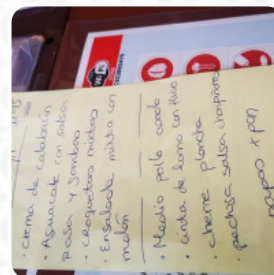 · crema de calabacín
· Aguacate con salsa
rosa y gambas
· croquetas mixtas
· Ensalada mixta con
melón
· Medio pollo asado
· cinta de lomo con Huevo
· cherne plancha
· pechuga salsa champiñones